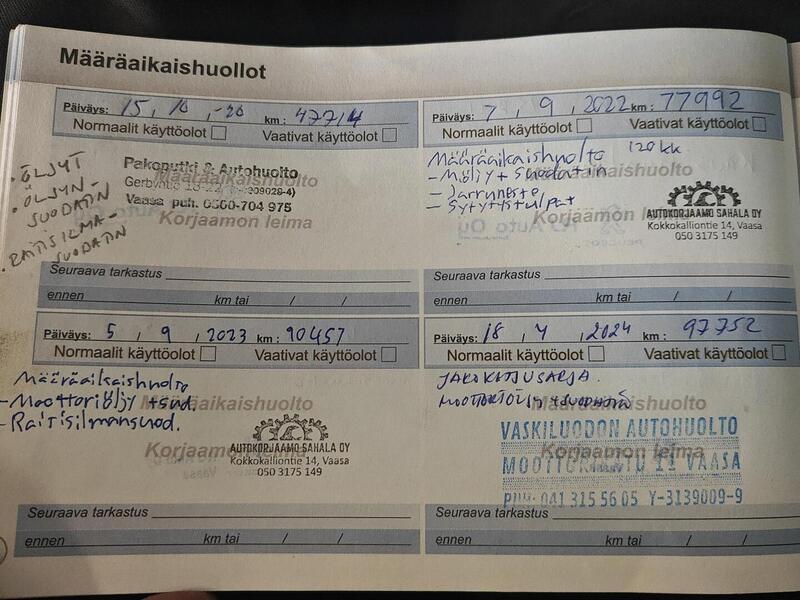 Määräaikaishuollot
Päiväys: 15, 10, -20 km: 47714
Normaalit käyttöolot Vaativat käyttöolot
• ÖLJYT
• ÖLJYN-
SUODATIN
• RAITISILMA-
SUODATIN
Pakoputki & Autohuolto
Gerbyntie 18-22
Vaasa puh. 0500-704 975
Määräaikaishuolto
Korjaamon leima
Seuraava tarkastus
ennen km tai / /
Päiväys: 7, 9, 2022 km: 77992
Normaalit käyttöolot Vaativat käyttöolot
Määräaikaishuolto 120kk
- Möljy + Suodatin
- Jarruneste
- Sytytystulpat
Määräaikaishuolto
Korjaamon leima
AUTOKORJAAMO SAHALA OY
Kokkokalliontie 14, Vaasa
050 3175 149
Seuraava tarkastus
ennen km tai / /
Päiväys: 5, 9, 2023 km: 90457
Normaalit käyttöolot Vaativat käyttöolot
Määräaikaishuolto
- Moottoriöljy + sud.
- Raitisilmansuod.
Määräaikaishuolto
Korjaamon leima
AUTOKORJAAMO SAHALA OY
Kokkokalliontie 14, Vaasa
050 3175 149
Seuraava tarkastus
ennen km tai / /
Päiväys: 18, 4, 2024 km: 97752
Normaalit käyttöolot Vaativat käyttöolot
JAKOKETJUSARJA.
MOOTTORIÖLJY + SUODATIN
Määräaikaishuolto
Korjaamon leima
VASKILUODON AUTOHUOLTO
11 VAASA
PUH. 041 315 56 05 Y-3139009-9
Seuraava tarkastus
ennen km tai / /